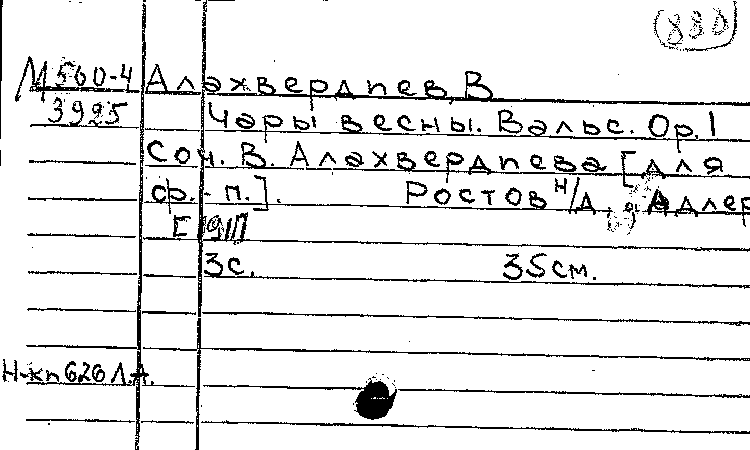 (880)
М 560-4 Алахвердпев, В
3925 Чары весны. Вальс. Ор.1
Соч. В. Алахвердпева [для
ф.-п.]. Ростов н/Д, Адлер
[1911]
3с. 35см.
Н-кп 626 Л.А.